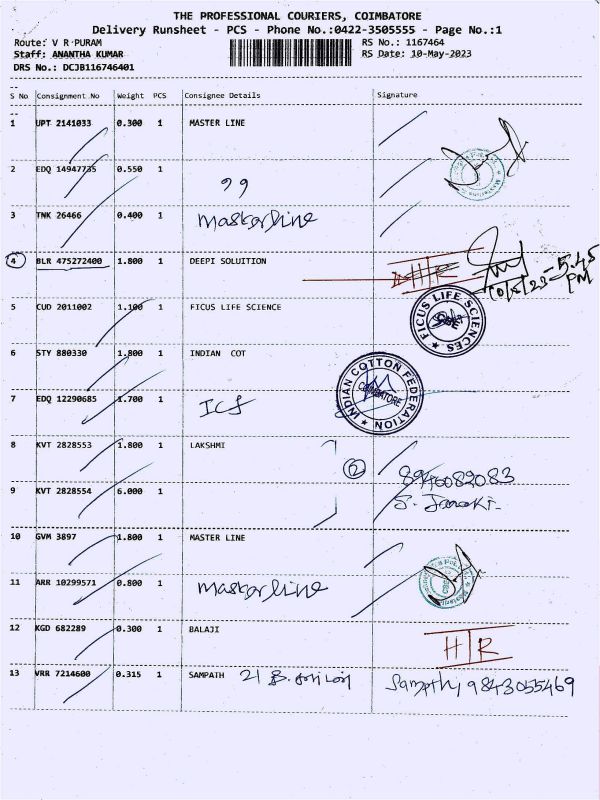 THE PROFESSIONAL COURIERS, COIMBATORE
Delivery Runsheet - PCS - Phone No.:0422-3505555 - Page No.:1
Route: V R PURAM RS No.: 1167464
Staff: ANANTHA KUMAR RS Date: 10-May-2023
DRS No.: DCJB116746401
S No Consignment No Weight PCS Consignee Details Signature
1 UPT 2141033 0.300 1 MASTER LINE
2 EDQ 14947735 0.550 1
3 TNK 26466 0.400 1 Masterline
4 BLR 475272400 1.800 1 DEEPI SOLUITION 10/5/23 - 5.45 PM
5 CUD 2011002 1.100 1 FICUS LIFE SCIENCE FICUS LIFE SCIENCES
6 STY 880330 1.800 1 INDIAN COT
INDIAN COTTON FEDERATION COIMBATORE
7 EDQ 12290685 1.700 1 ICF
8 KVT 2828553 1.800 1 LAKSHMI 2 8940082083
9 KVT 2828554 6.000 1 S. Janaki
10 GVM 3897 1.800 1 MASTER LINE
11 ARR 10299571 0.800 1 Masterline
12 KGD 682289 0.300 1 BALAJI H|R
13 VRR 7214600 0.315 1 SAMPATH 21 Sampath, 9843055469